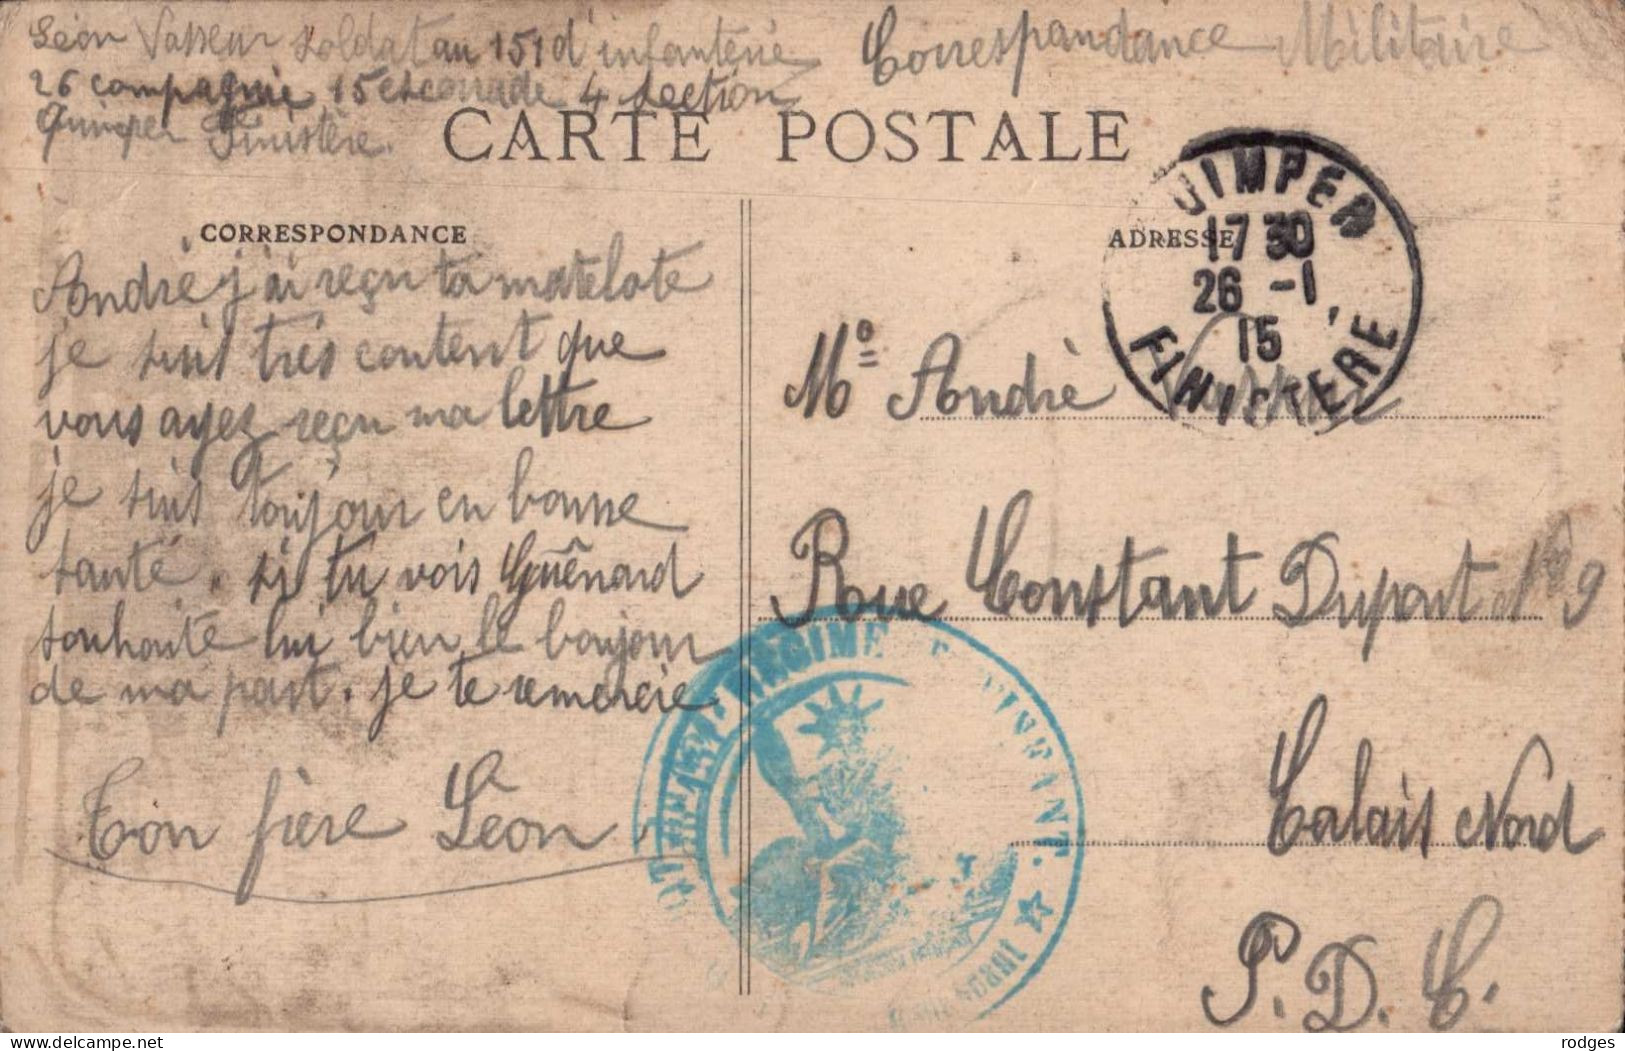 Léon Vasseur soldat au 151 d'infanterie
Correspondance Militaire
26 compagnie 15 escouade 4 section
Quimper Finistère.
CARTE POSTALE
CORRESPONDANCE
ADRESSE
QUIMPER
17 30
26 -1
15
FINISTERE
André j'ai reçu ta matelote
je suis très content que
vous ayez reçu ma lettre
je suis toujour en bonne
santé. si tu vois Guênard
souhaite lui bien le boujour
de ma part. je te remercie
Ton frère Léon
Mo André Vasseur
Rue Constant Dupont No 9
Calais Nord
P. D. C.
REGIME INFANT.
rodges